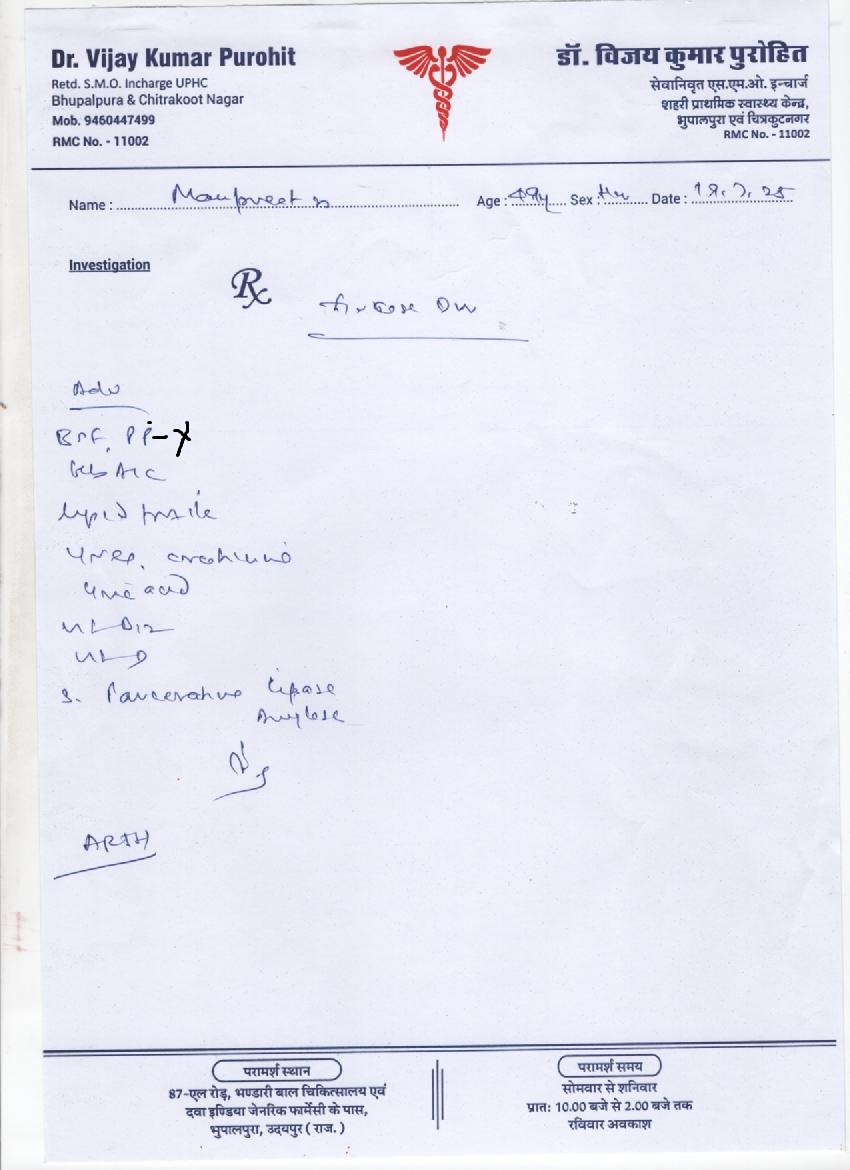 Dr. Vijay Kumar Purohit
Retd. S.M.O. Incharge UPHC
Bhupalpura & Chitrakoot Nagar
Mob. 9460447499
RMC No. - 11002
डॉ. विजय कुमार पुरोहित
सेवानिवृत एस.एम.ओ. इन्चार्ज
शहरी प्राथमिक स्वास्थ्य केन्द्र,
भुपालपुरा एवं चित्रकुटनगर
RMC No. - 11002
Name : Manpreet Age : 49y Sex : Date :
Investigation
Rx
Adv
PP
lipid profile
Urea, creatinine
Uric acid
S. Lipase
Amylase
ARTH
परामर्श स्थान
87-एल रोड़, भण्डारी बाल चिकित्सालय एवं
दवा इण्डिया जेनरिक फार्मेसी के पास,
भुपालपुरा, उदयपुर ( राज. )
परामर्श समय
सोमवार से शनिवार
प्रात: 10.00 बजे से 2.00 बजे तक
रविवार अवकाश